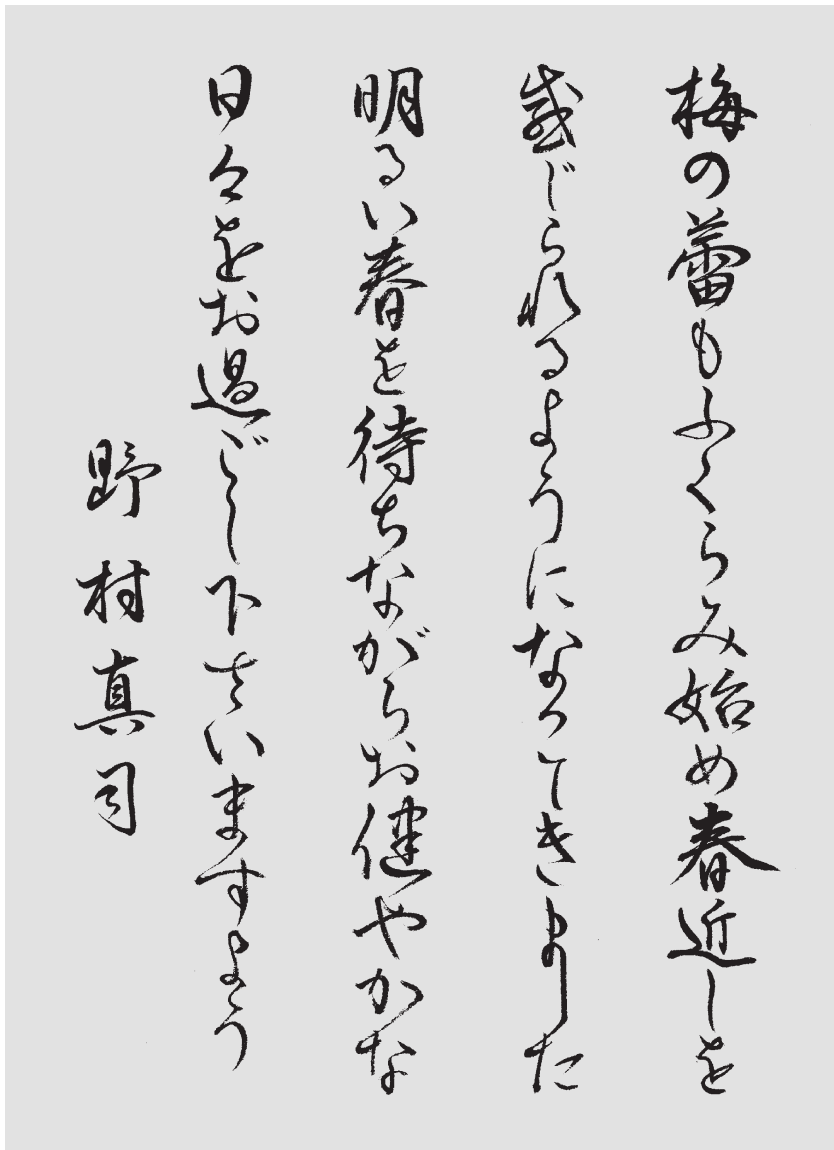 梅の蕾もふくらみ始め春近しを
感じられるようになってきました
明るい春を待ちながらお健やかな
日々をお過ごし下さいますよう
野村真司